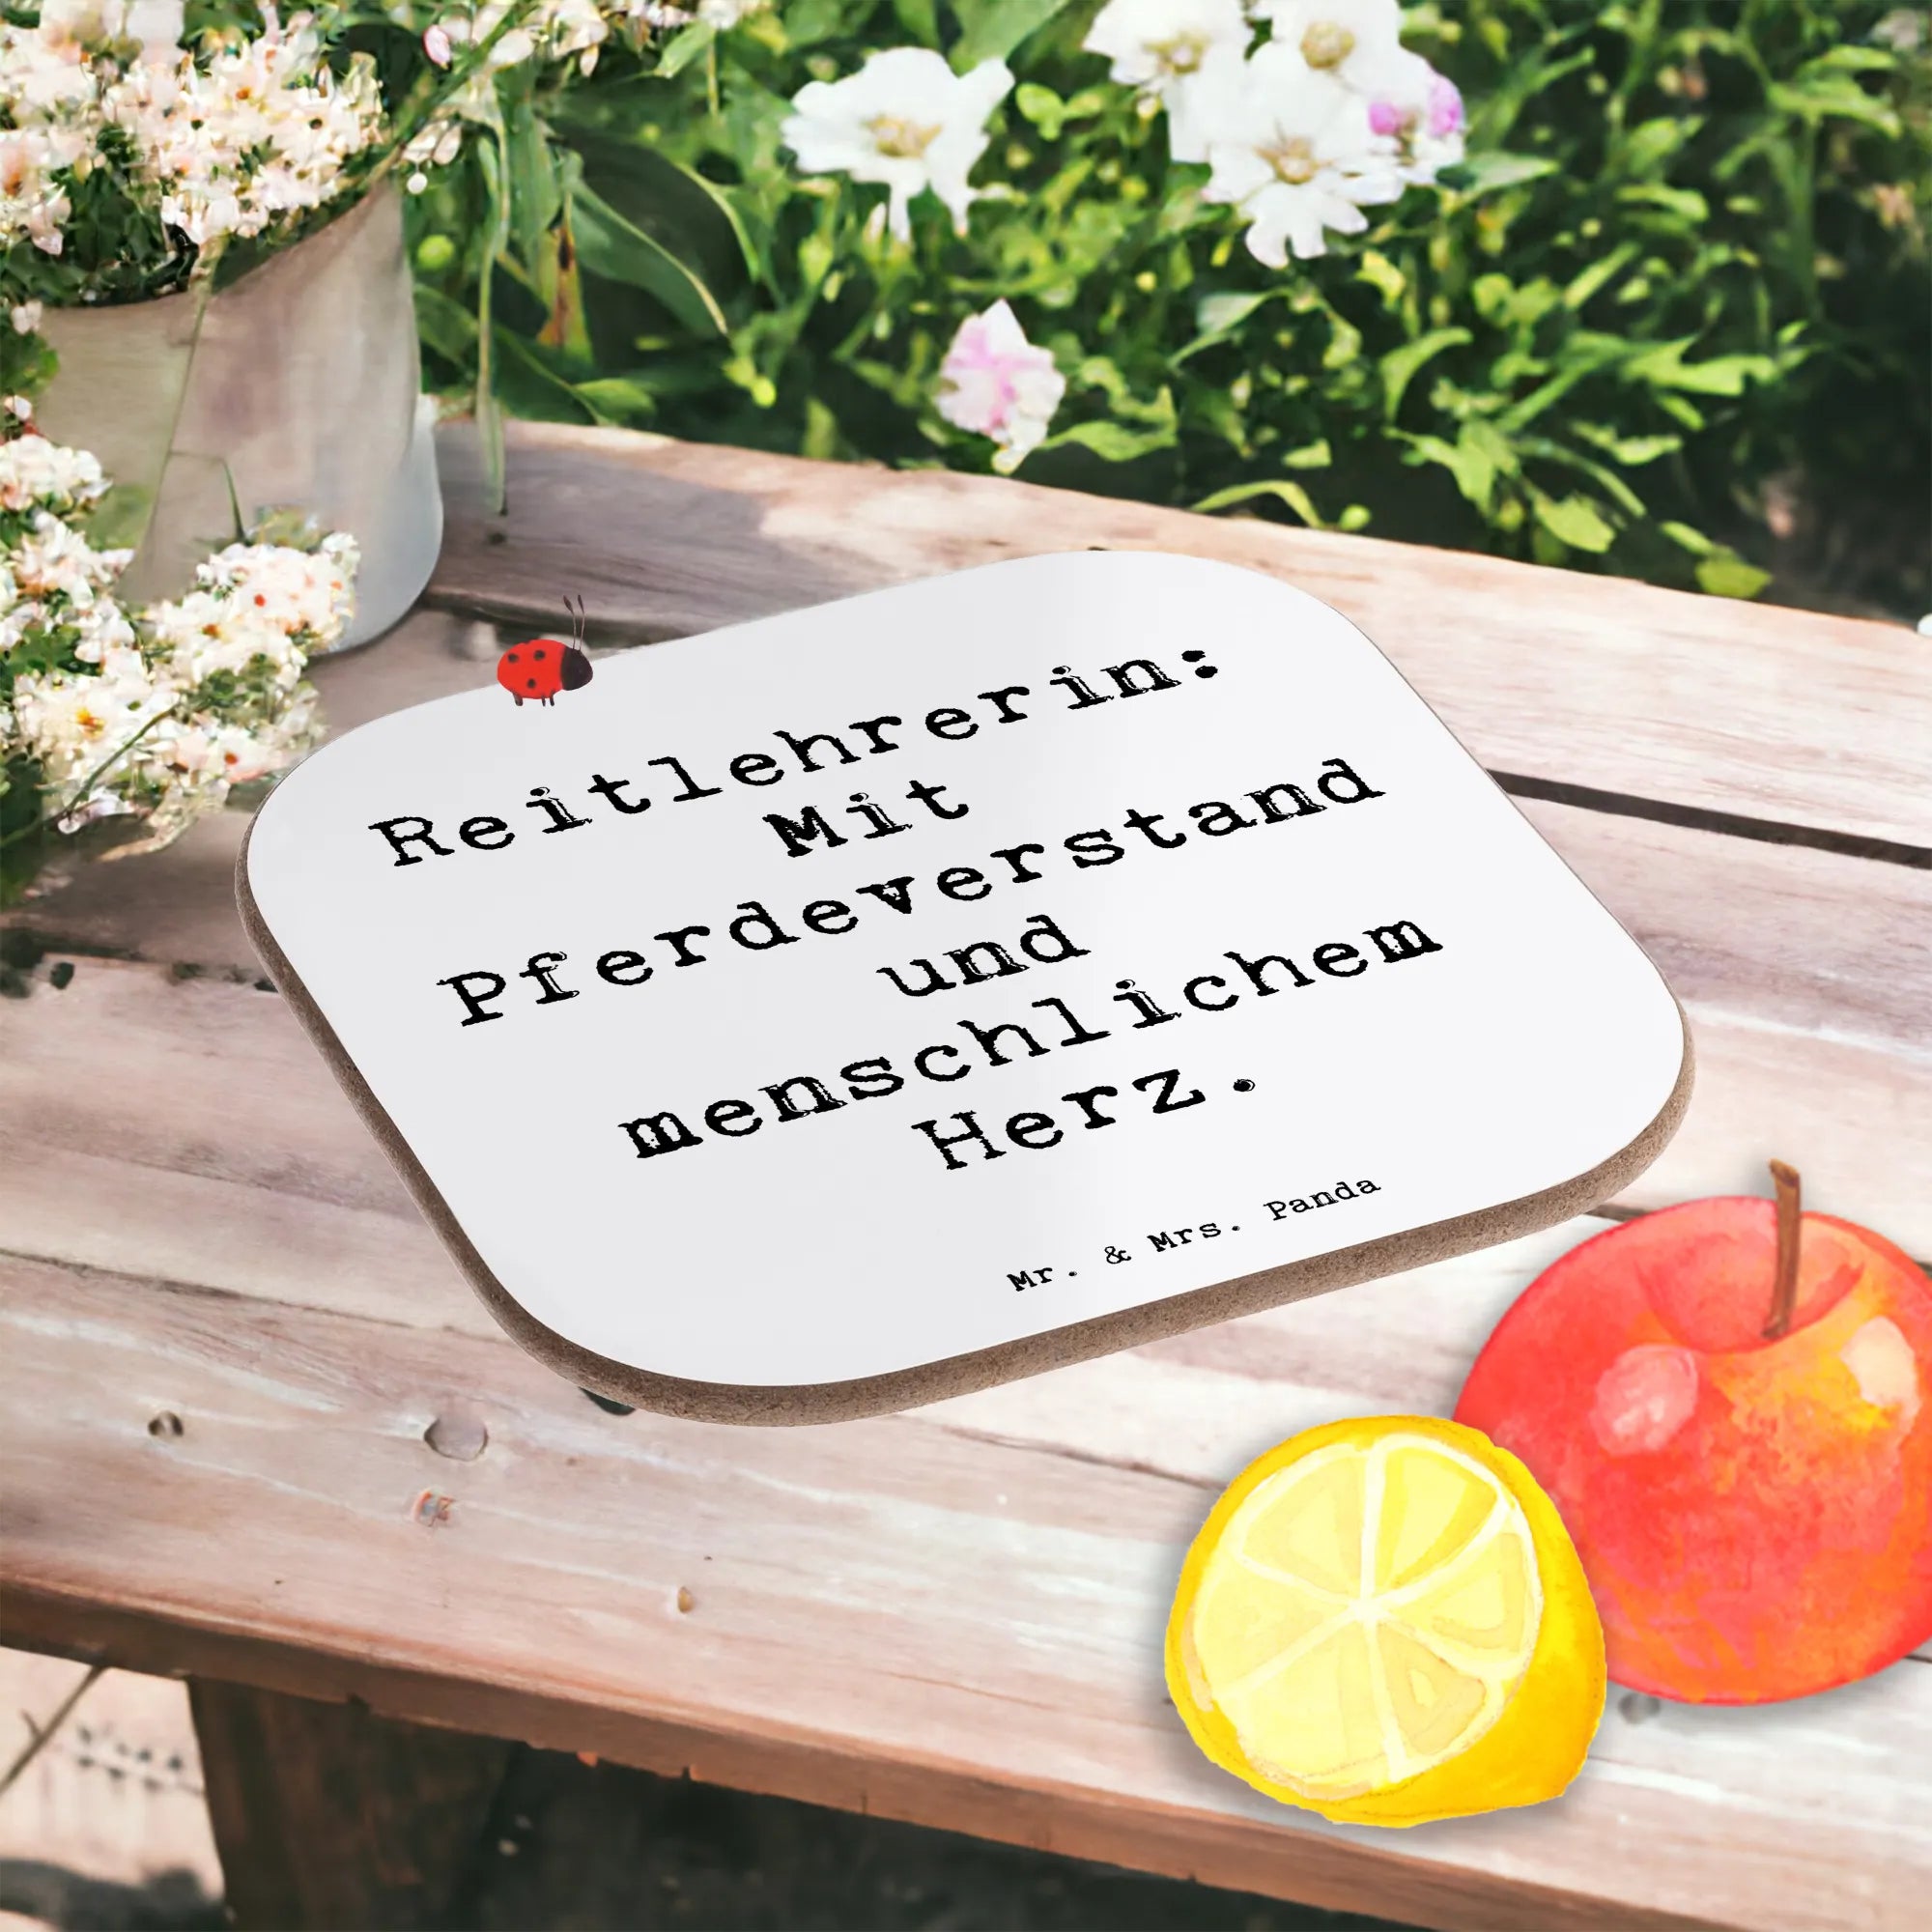 Reitlehrerin:
Mit
Pferdeverstand
und
menschlichem
Herz.
Mr. & Mrs. Panda